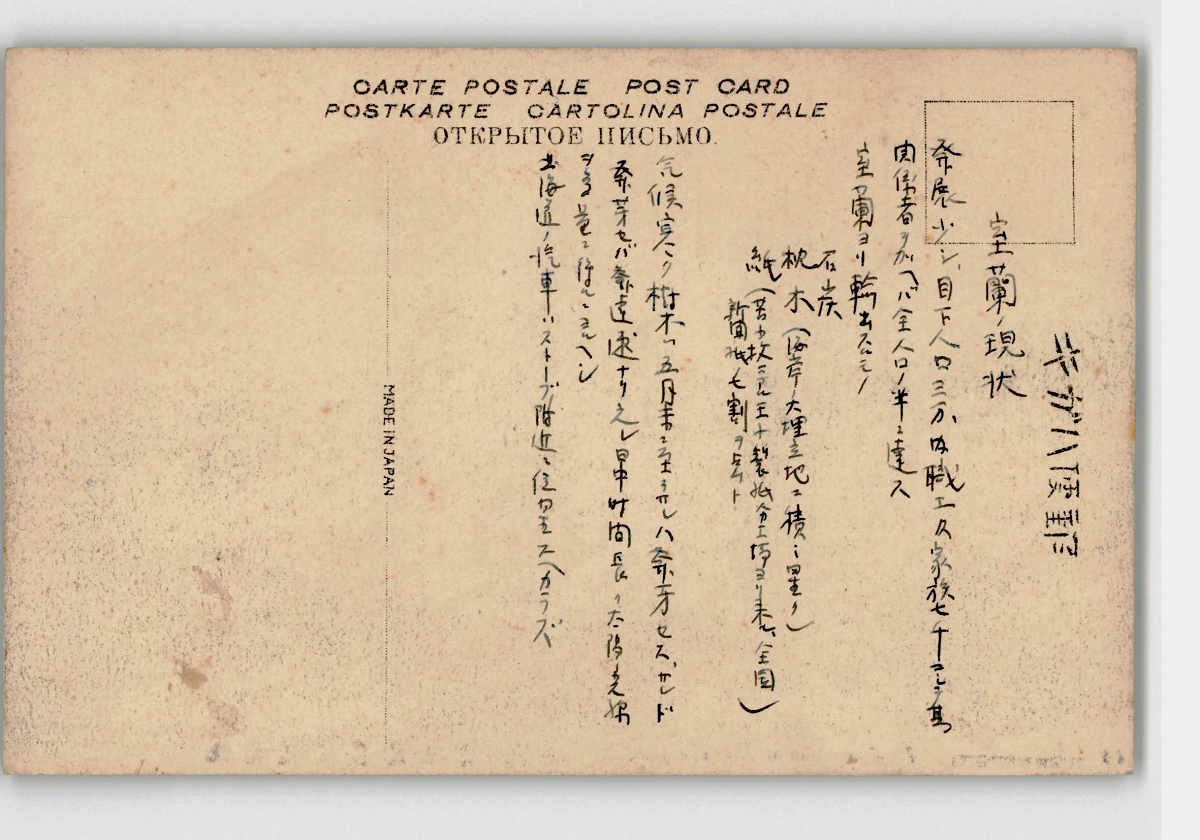 CARTE POSTALE POST CARD
POSTKARTE CARTOLINA POSTALE
ОТКРЫТОЕ ПИСЬМО.
室蘭ノ現状
発展少シ、目下人口三万 職工及家族七千 其
関係者ヲ加ヘバ全人口ノ半ニ達ス
室蘭ヨリ輸出スルモノ
石炭
枕木(海岸ノ大埋立地ニ積ミ置ク)
紙(苫小牧ニアル王子製紙 工場ヨリ来ル、全国
新聞紙ノ七割ヲ占ム)
気候寒ク樹木ハ五月末ニ至ラザレハ発芽セズ、サレド
発芽セバ発達速ナリ之レ日中時間長ク太陽ノ光線
多量ニ
北海道ノ汽車ハストーブ附近ニ位置スヘカラズ
MADE IN JAPAN